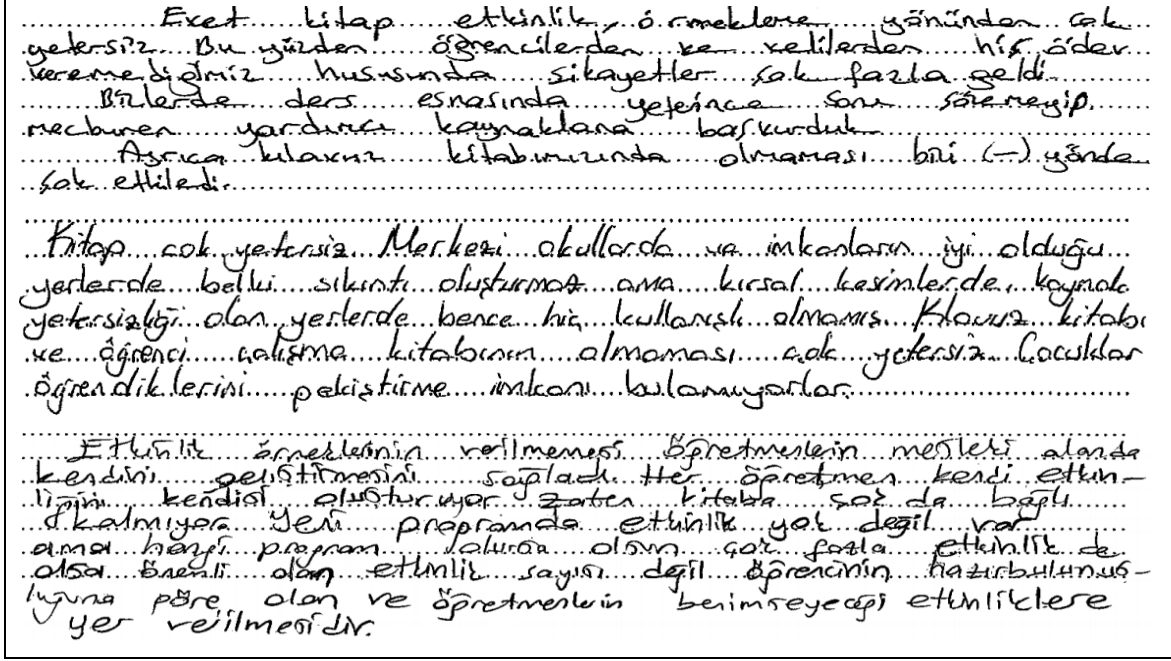 Evet kitap etkinlik, örneklere yönünden çok
yetersiz. Bu yüzden öğrencilerden ve velilerden hiç ödev
veremediğimiz hususunda şikayetler çok fazla geldi.
Bizlerde ders esnasında yeterince soru
mecburen yardımcı kaynaklara başvurduk
Ayrıca kılavuz kitabımızında olmaması bizi (-) yönde
çok etkiledi.
Kitap çok yetersiz. Merkezi okullarda ve imkanların iyi olduğu
yerlerde belki sıkıntı oluşturmaz ama kırsal kesimlerde, kaynak
yetersizliği olan yerlerde bence hiç kullanışlı olmamış. Klavuz kitabı
ve öğrenci çalışma kitabının olmaması çok yetersiz. Çocuklar
öğrendiklerini pekiştirme imkanı bulamıyorlar.
Etkinlik örneklerinin verilmemesi öğretmenlerin mesleki alanda
kendini geliştirmesini sağladı. Her öğretmen kendi etkin-
liğini kendisi oluşturuyor zaten kitaba çok da bağlı
kalmıyor. Yeni programda etkinlik yok değil var
ama hangi program olursa olsun çok fazla etkinlik de
olsa önemli olan etkinlik sayısı değil öğrencinin hazırbulunuş-
luğuna göre olan ve öğretmenlerin benimseyeceği etkinliklere
yer verilmesidir.